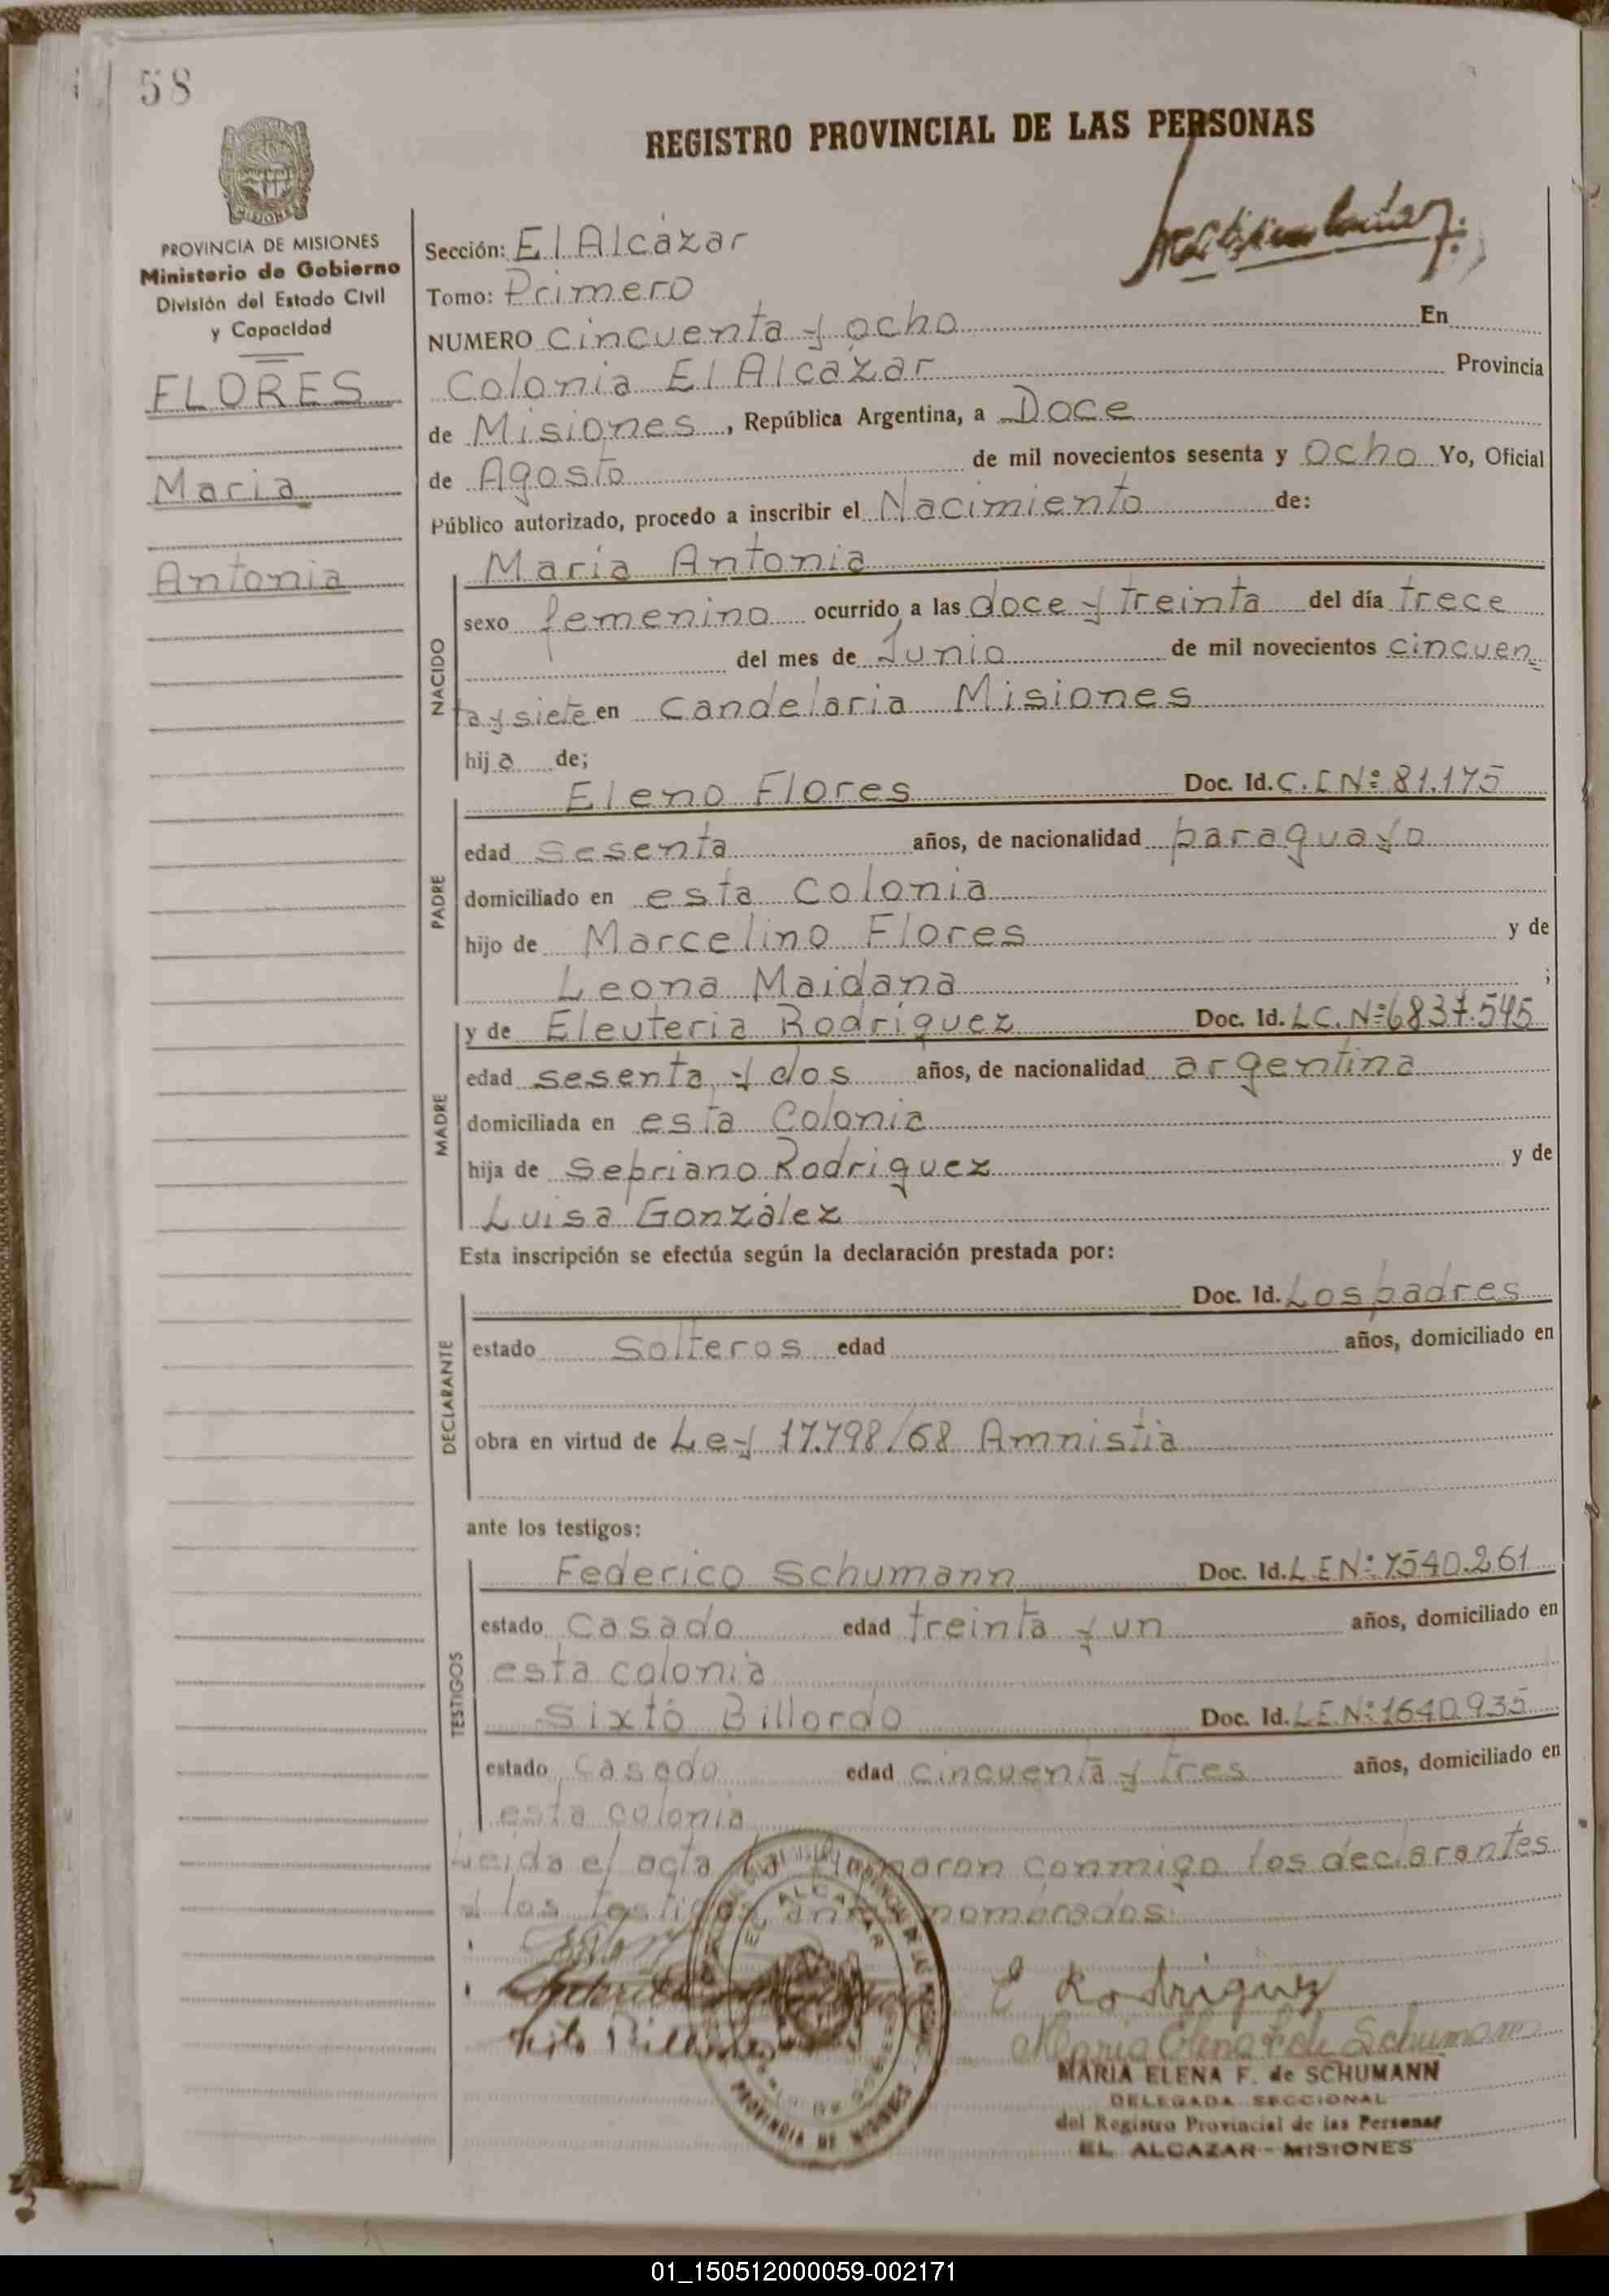 58
REGISTRO PROVINCIAL DE LAS PERSONAS
MISIONES
PROVINCIA DE MISIONES
Ministerio de Gobierno
División del Estado Civil
y Capacidad
FLORES
Maria
Antonia
Sección: El Alcázar
Tomo: Primero
NUMERO cincuenta y ocho En
Colonia El Alcázar Provincia
de Misiones, República Argentina, a Doce
de Agosto de mil novecientos sesenta y ocho Yo, Oficial
Público autorizado, procedo a inscribir el Nacimiento de:
NACIDO
María Antonia
sexo femenino ocurrido a las doce y treinta del día trece
del mes de Junio de mil novecientos cincuen=
ta y siete en Candelaria Misiones
hija de;
PADRE
Eleno Flores Doc. Id. C.I Nº 81.175
edad sesenta años, de nacionalidad paraguayo
domiciliado en esta Colonia
hijo de Marcelino Flores y de
Leona Maidana ;
MADRE
y de Eleuteria Rodríguez Doc. Id. L.C. Nº 6837.545
edad sesenta y dos años, de nacionalidad argentina
domiciliada en esta Colonia
hija de Sepriano Rodriguez y de
Luisa González
Esta inscripción se efectúa según la declaración prestada por:
DECLARANTE
Doc. Id. Los padres
estado Solteros edad años, domiciliado en
obra en virtud de Ley 17.798/68 Amnistia
ante los testigos:
TESTIGOS
Federico Schumann Doc. Id. L.E Nº 7540.261
estado casado edad treinta y un años, domiciliado en
esta colonia
Sixto Billordo Doc. Id. L.E. Nº 1640.935
estado casado edad cincuenta y tres años, domiciliado en
esta colonia
Leida el acta la firmaron conmigo los declarantes
y los testigos antes nombrados:
E Rodriguez
Sixto Billordo
EL ALCAZAR
PROVINCIA DE MISIONES
Maria Elena F de Schumann
MARIA ELENA F. de SCHUMANN
DELEGADA SECCIONAL
del Registro Provincial de las Personas
EL ALCAZAR - MISIONES
01_150512000059-002171